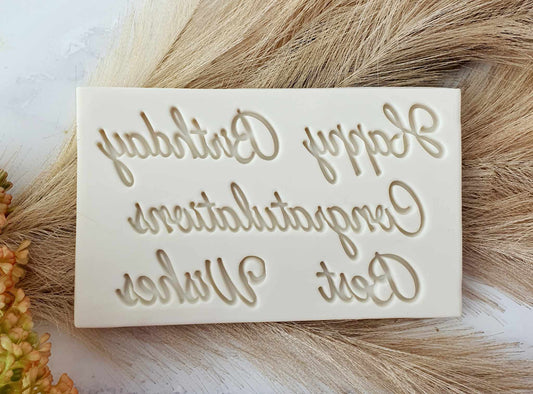 Happy Birthday
Congratulations
Best Wishes